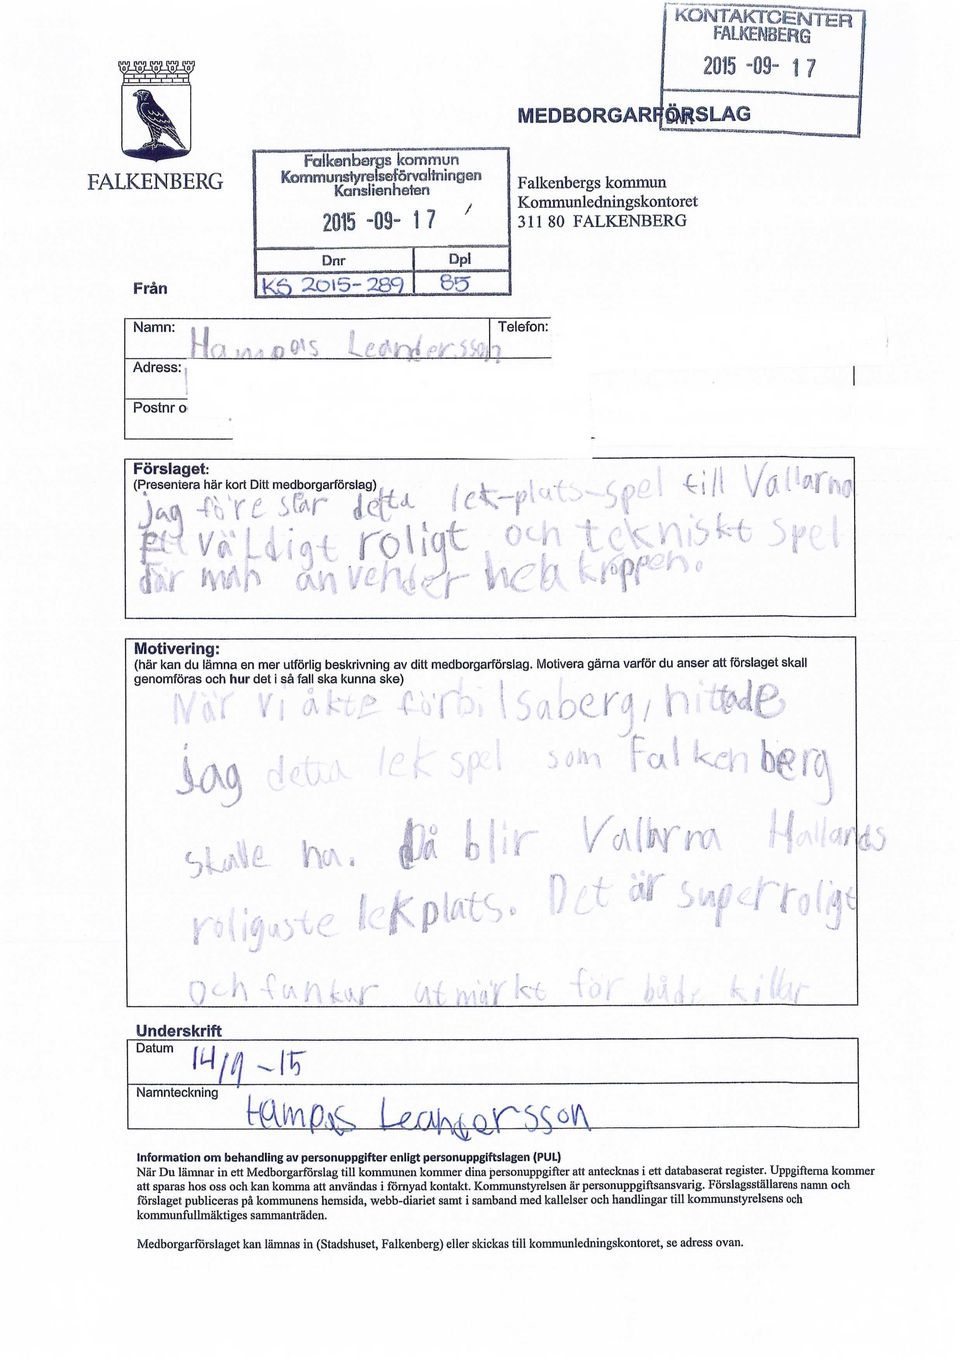 KONTAKTCENTER
FALKENBERG
2015 -09- 17
MEDBORGARFÖRSLAG
FALKENBERG
Falkenbergs kommun
Kommunstyrelseförvaltningen
Kanslienheten
2015 -09- 17
Dnr Dpl
KS 2015-289 85
Falkenbergs kommun
Kommunledningskontoret
311 80 FALKENBERG
Från
Namn: Hampus Leandersson Telefon:
Adress:
Postnr o
Förslaget:
(Presentera här kort Ditt medborgarförslag)
detta lek-plats-spel till Vallarna
Jag före slår
Ett väldigt roligt och tekniskt spel
där man anvender hela kroppen.
Motivering:
(här kan du lämna en mer utförlig beskrivning av ditt medborgarförslag. Motivera gärna varför du anser att förslaget skall
genomföras och hur det i så fall ska kunna ske)
När vi åkte förbi Isaberg, hittade
jag detta lek spel som Falkenberg
skulle ha. Då blir Vallarna Hallands
roliguste lekplats. Det är superroligt
och funkar utmärkt för både killar
Underskrift
Datum 14/9 -15
Namnteckning Hampus Leandersson
Information om behandling av personuppgifter enligt personuppgiftslagen (PUL)
När Du lämnar in ett Medborgarförslag till kommunen kommer dina personuppgifter att antecknas i ett databaserat register. Uppgifterna kommer
att sparas hos oss och kan komma att användas i förnyad kontakt. Kommunstyrelsen är personuppgiftsansvarig. Förslagsställarens namn och
förslaget publiceras på kommunens hemsida, webb-diariet samt i samband med kallelser och handlingar till kommunstyrelsens och
kommunfullmäktiges sammanträden.
Medborgarförslaget kan lämnas in (Stadshuset, Falkenberg) eller skickas till kommunledningskontoret, se adress ovan.